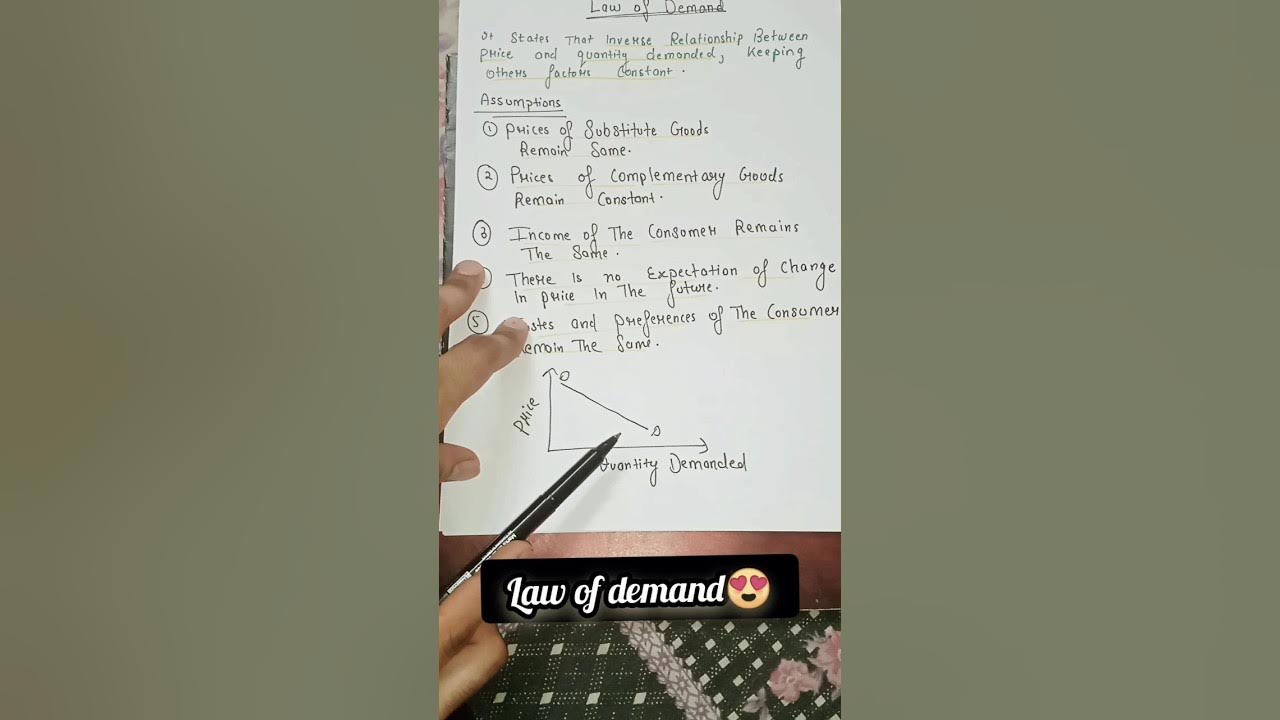 Law of Demand
It States That Inverse Relationship Between
Price and quantity demanded, Keeping
Others factors Constant.
Assumptions
① Prices of Substitute Goods
Remain Same.
② Prices of Complementary Goods
Remain Constant.
③ Income of The Consumer Remains
The Same.
There Is no Expectation of Change
In price In The future.
⑤ and preferences of The Consumer
The Same.
D
Price
D
Quantity Demanded
Law of demand😍